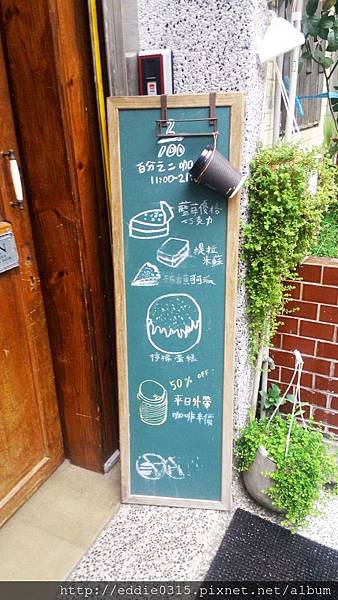 2
100
百分之二咖
11:00-21
藍莓優格
巧克力
提拉
米蘇
檸檬蛋糕
50% OFF
平日外帶
咖啡半價
http://eddie0315.pixnet.net/album